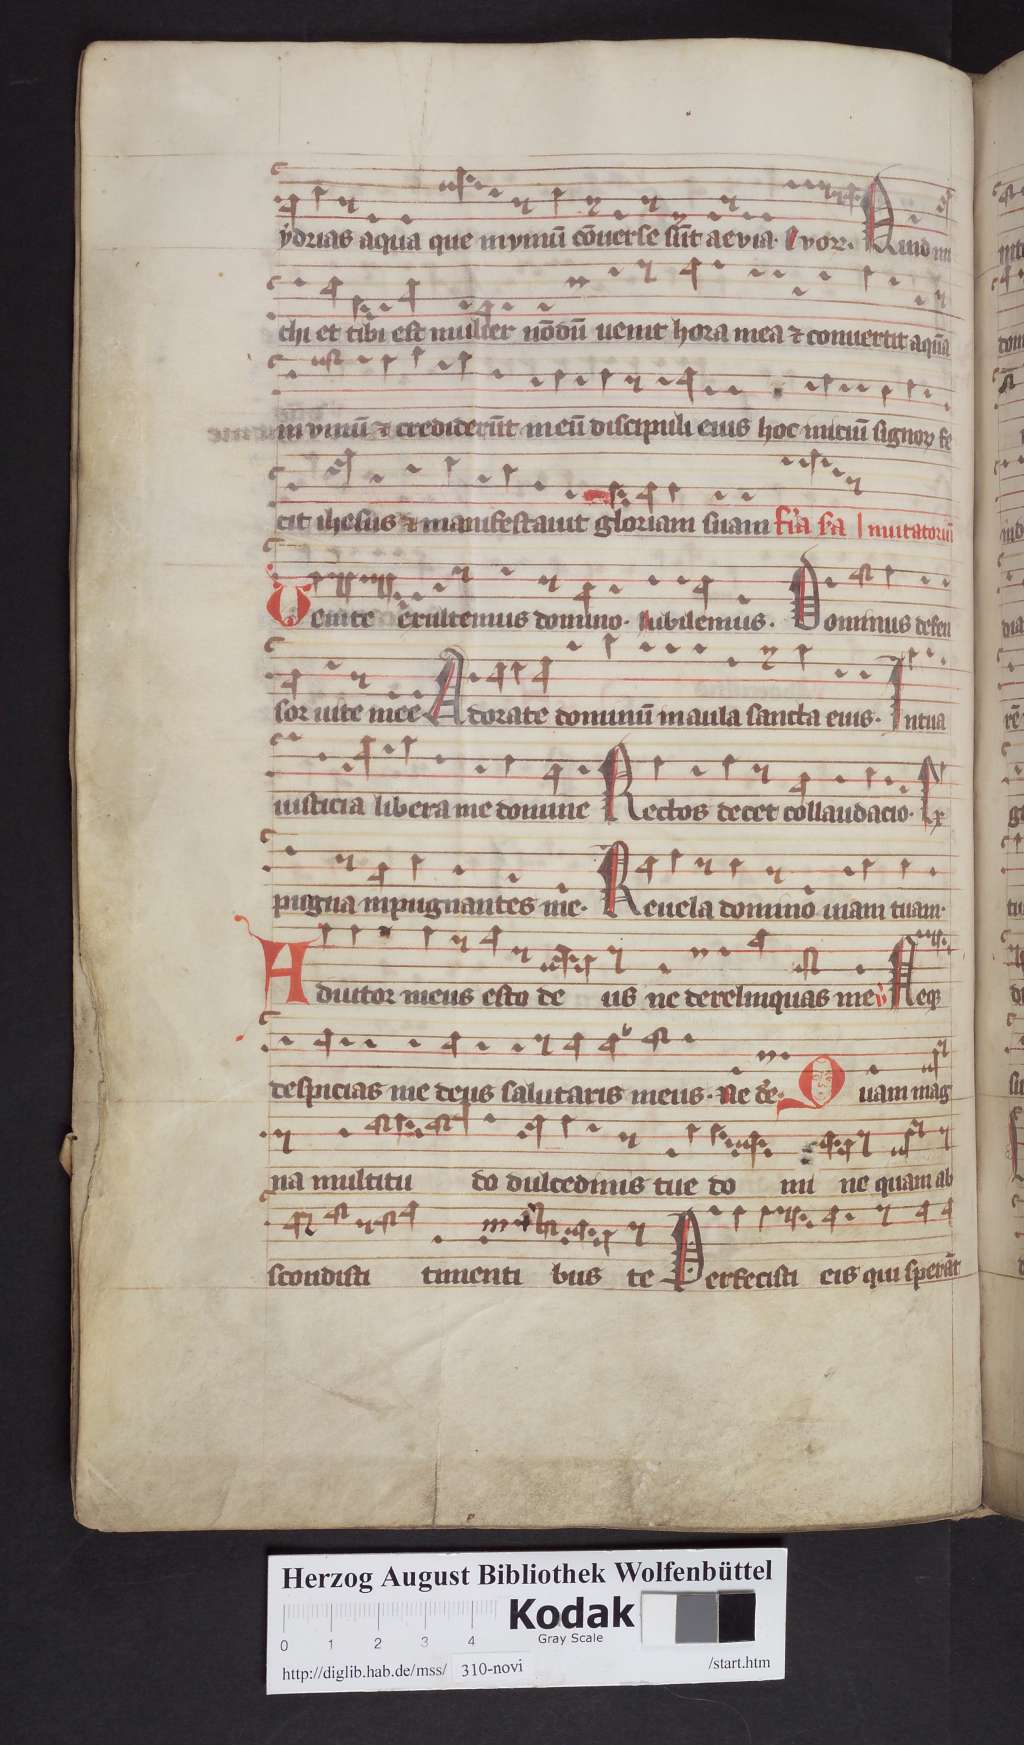 ẏdrias aqua que in vinū cōuerse sūt aevia. Evovæ. Quid m
chi et tibi est mulier nōdū uenit hora mea ⁊ conuertit aquā
in vinū ⁊ crediderūt in eū discipuli eius hoc iniciū signoꝝ fe
cit ihesus ⁊ manifestauit gloriam suam Fīa sᷓa Inuitatoriū
Venite exultemus domino. Iubilemus. Dominus defen
sor uite mee Adorate dominū in aula sancta eius. In tua
iusticia libera me domine Rectos decet collaudacio. Ex
pugna inpugnantes me. Reuela domino uiam tuam.
Adiutor meus esto de us ne derelinquas me ꝟ Neqꝫ
despicias me deus salutaris meus. Ne de. Quam mag
na multitu do dulcedinis tue do mi ne quam ab
scondisti timenti bus te Perfecisti eis qui sperāt
Herzog August Bibliothek Wolfenbüttel
Kodak
Gray Scale
0 1 2 3 4
http://diglib.hab.de/mss/ 310-novi /start.htm